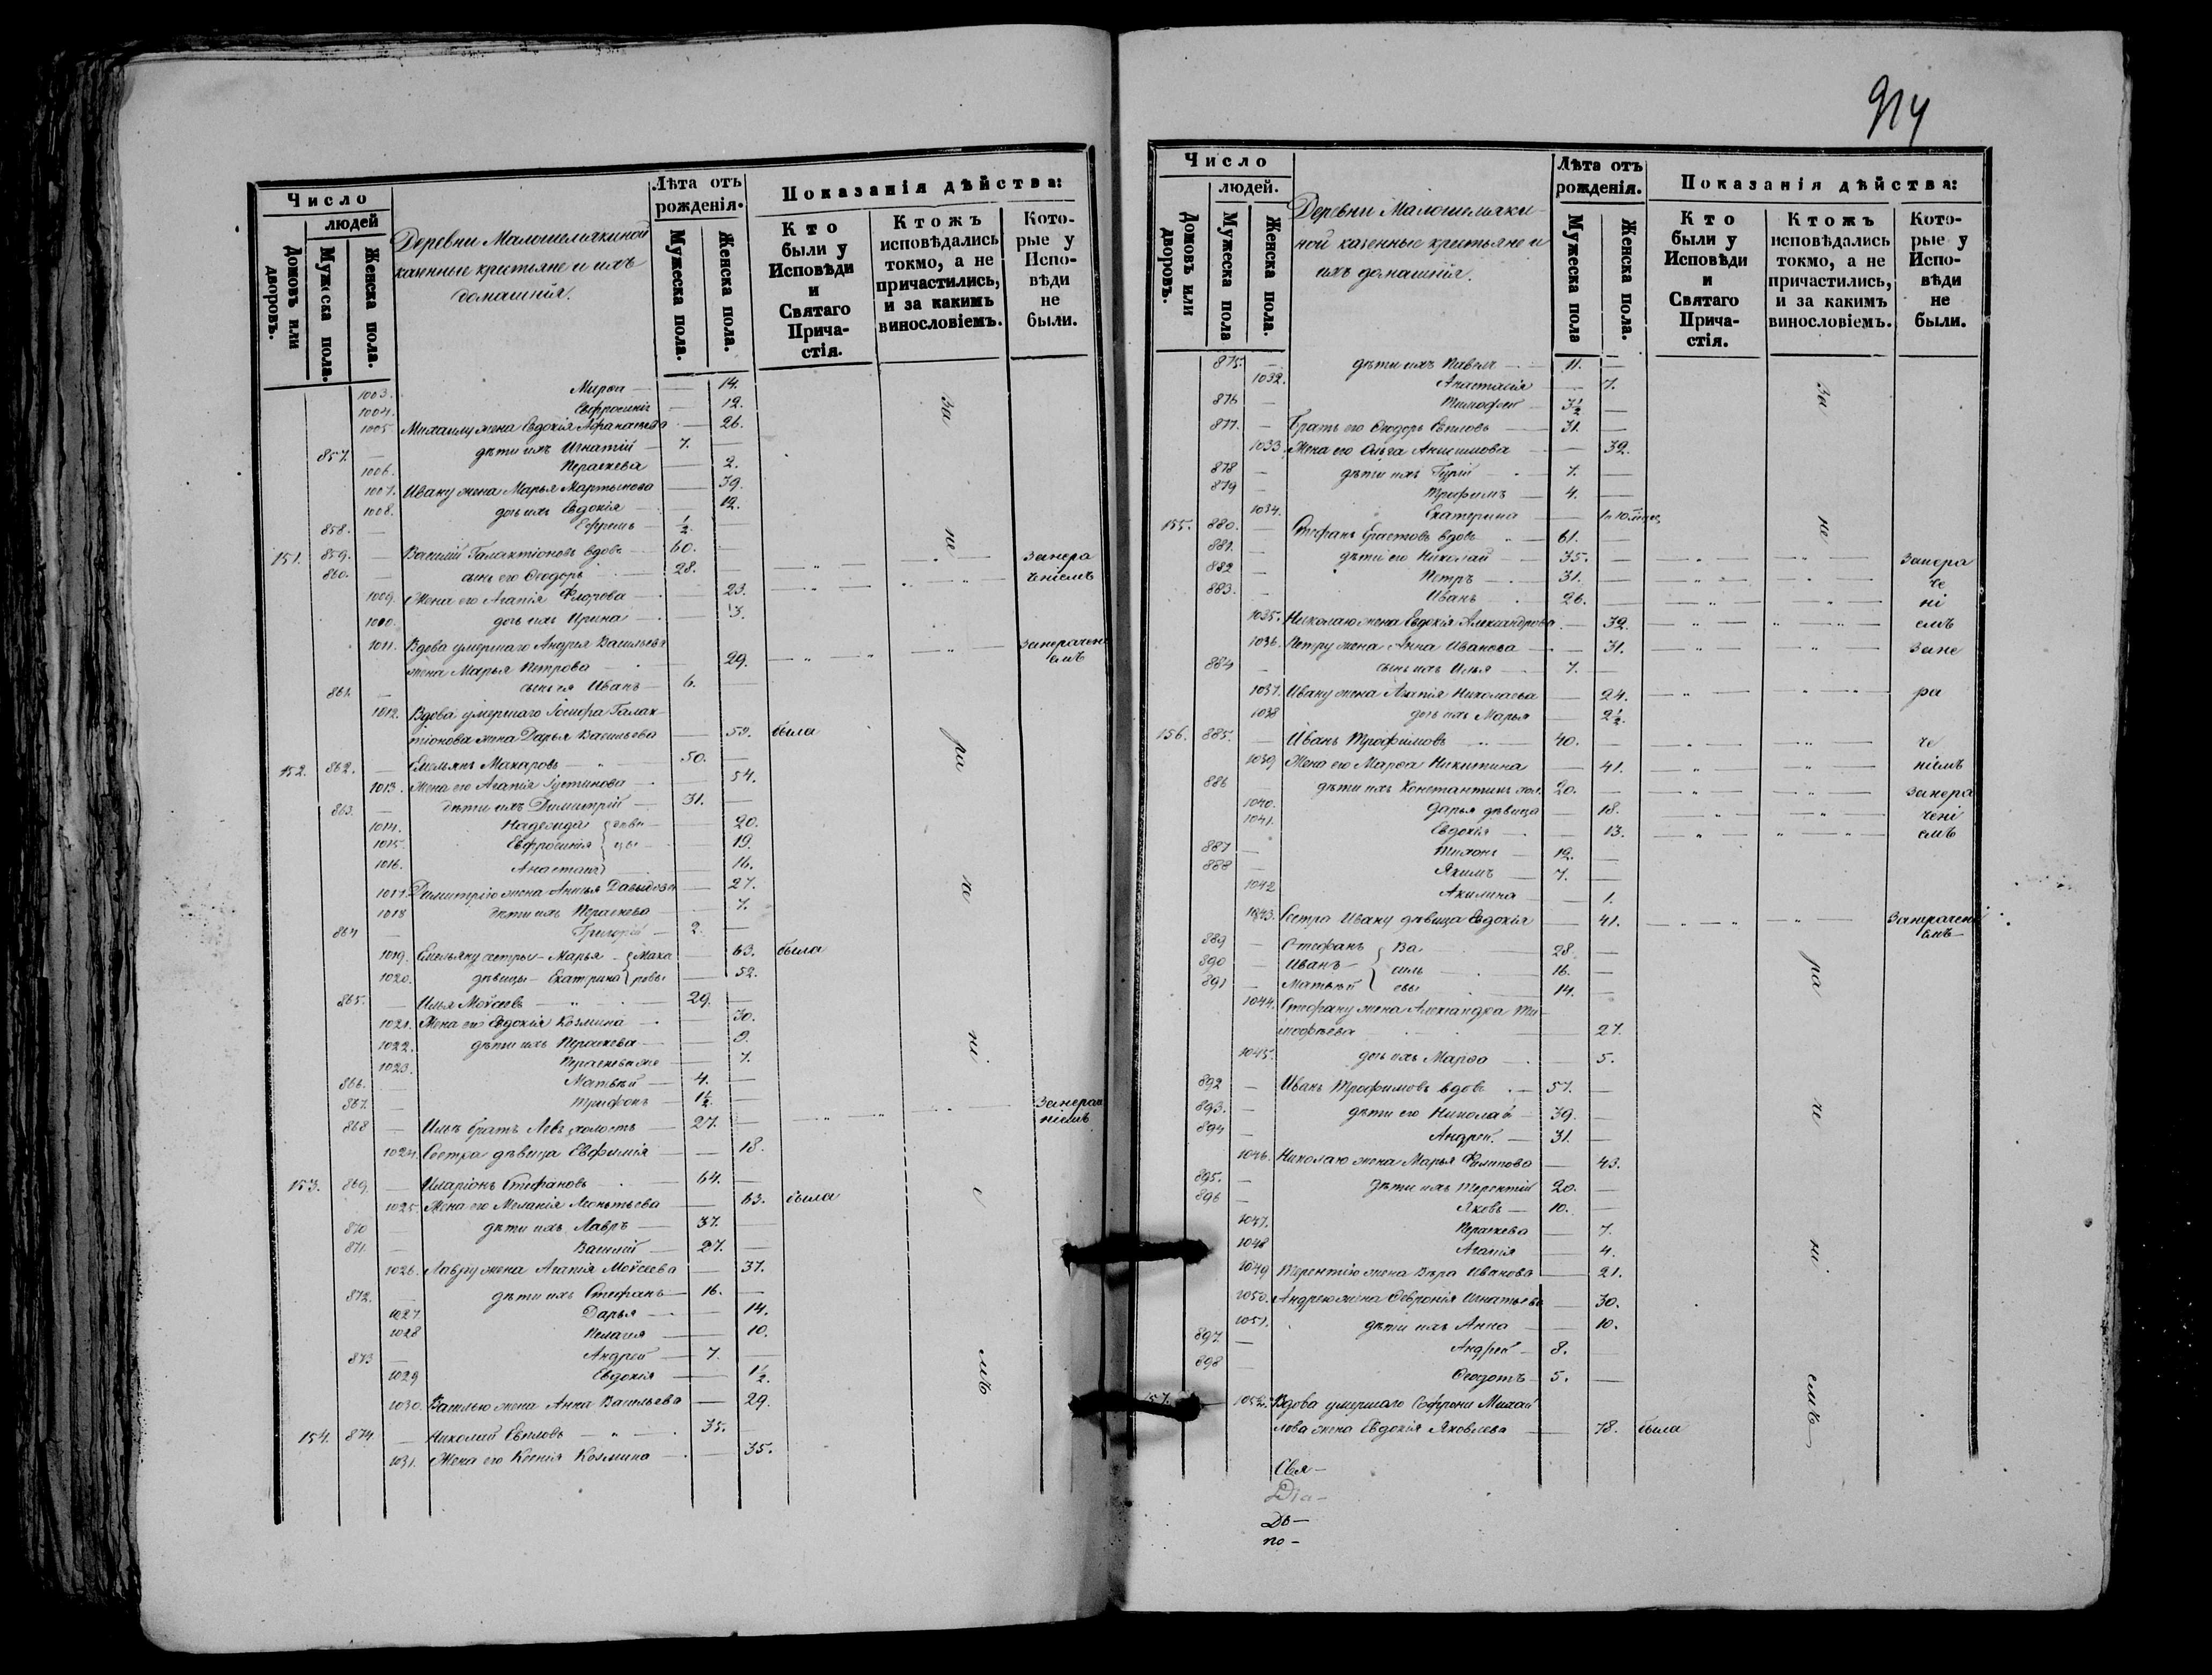 914
Число
людей
Домовъ или дворовъ.
Мужеска пола.
Женска пола.
Деревни Малошемякиной
казенные крестьяне и ихъ
домашнія.
Лѣта отъ
рожденія.
Мужеска пола.
Женска пола.
Показанія дѣйства:
Кто были у Исповѣди и Святаго Причастія.
Ктожъ исповѣдались токмо, а не причастились, и за какимъ винословіемъ.
Которые у Исповѣди не были.
1003. Марѳа — — 14.
1004. Евфросинія — 12.
1005 Михаилу жена Евдокія Афанасьева — 26.
857. — дѣти ихъ Игнатій — 7. —
1006. Параскева — 2.
1007. Ивану жена Марья Мартынова — 39.
1008. дочь ихъ Евдокія — — 12.
858. — Ефремъ — 1/2 —
151. 859. — Василій Галактіоновъ вдовъ — 60. — занера
860. — сынъ его Ѳеодоръ — 28. — ченіемъ
1009. Жена его Агапія Флорова — — 23.
1010. дочь ихъ Ирина — — 3.
1011. Вдова умершаго Андрея Васильева занерачені
жена Марья Петрова — 29. емъ
861. — сынъ ея Иванъ — 6. —
1012. Вдова умершаго Іосифа Галак-
тіонова жена Дарья Васильева — 59. была
152. 862. — Емельянъ Макаровъ — 50. —
1013. Жена его Агапія Іустинова — 54.
863. — дѣти ихъ Димитрій — 31. —
1014. Надежда дѣви — 20.
1015. Евфросинія цы — 19.
1016. Анастасія 16.
1017. Димитрію жена Анисья Давыдова — 27.
1018 дѣти ихъ Параскева — 7.
864 — Григорій — 2. —
1019. Емельяну сестры — Марья Мака — 63. была
1020. дѣвицы — Екатрина ровы — 52.
865. — Илья Моѵсеевъ — 29. —
1021. Жена его Евдокія Козмина — 30.
1022. дѣти ихъ Параскева — 9.
1023. Параскева же — 7.
866. — Матвѣй — 4. —
867. — Трифонъ — 1 1/2. — занерач
868 — Ильѣ братъ Левъ холостъ — 27. — ніемъ
1024. Сестра дѣвица Евфимія — — 18.
153. 869. — Иларіонъ Стефановъ — 64. —
1025. Жена его Меланія Леонтьева — 63. была
870 — дѣти ихъ Лавръ — 37. —
871. — Василій — 27. —
1026. Лавру жена Агапія Моѵсеева — 37.
872. — дѣти ихъ Стефанъ — 16. —
1027. Дарья — — 14.
1028 Пелагея — 10.
873 — Андрей — 7. —
1029 Евдокія — 1 1/2.
1030. Василью жена Анна Васильева — 29.
154. 874. — Николай Евпловъ — 35.
1031. Жена его Ксенія Козмина — — 35.
За
не
ра
че
ні
е
мъ
Число
людей.
Домовъ или дворовъ.
Мужеска пола
Женска пола.
Деревни Малошемяки-
ной казенные крестьяне и
ихъ домашнія.
Лѣта отъ
рожденія.
Мужеска пола
Женска пола.
Показанія дѣйства:
Кто были у Исповѣди и Святаго Причастія.
Ктожъ исповѣдались токмо, а не причастились, и за какимъ винословіемъ.
Которые у Исповѣди не были.
875. — дѣти ихъ Павелъ — 11. —
1032. Анастасія — 7.
876 — Тимофей — 3 1/2 —
877. — Братъ его Ѳеодоръ Евпловъ — 31. —
1033. Жена его Ольга Анисимова — 32.
878 — дѣти ихъ Гурій — 7. —
879 — Трофимъ — 4. —
1034. Екатерина — 1 и 10 мѣсяц.
155. 880. — Стефанъ Ерастовъ вдовъ — 61. —
881. — дѣти его Николай — 35. — занера
882 — Петръ — 31. — че
883. — Иванъ — 26. — ні
1035. Николаю жена Евдокія Александрова — 32. емъ
1036. Петру жена Анна Иванова — 31. зане
884 — сынъ ихъ Илья — 7. —
1037. Ивану жена Агапія Николаева — 24. ра
1038 дочь ихъ Марья — 2 1/2.
156. 885. — Иванъ Трофимовъ — 40. — че
1039 Жена его Марѳа Никитина — 41. ніемъ
886 дѣти ихъ Константинъ хол. 20. — занера
1040. Дарья дѣвица — 18. чені
1041. Евдокія — 13. емъ
887 — Тихонъ — 12. —
888 — Якимъ — 7. —
1042 Акилина — 1.
1043. Сестра Ивану дѣвица Евдокія — 41. занерачені
емъ
889 — Стефанъ Ва 28 —
890 — Иванъ — силь 16. —
891 — Матвѣй евы 14. —
1044. Стефану жена Александра Ти-
мофѣева — 27.
1045. дочь ихъ Марѳа — 5.
892 — Иванъ Трофимовъ вдовъ — 57. —
893. — дѣти его Николай — 39. —
894 — Андрей. — 31. —
1046. Николаю жена Марья Филипова — 43.
895. — дѣти ихъ Терентій 20. —
896 — Яковъ — 10. —
1047. Параскева — 7.
1048 Агапія — 4.
1049 Терентію жена Вѣра Иванова — 21.
1050. Андрею жена Февронія Игнатьева — 30.
1051. дѣти ихъ Анна — 10.
897. — Андрей — 8. —
898 — Ѳеодотъ — 5. —
157. 1052. Вдова умершаго Софрони Михай
лова жена Евдокія Яковлева — 78. была
За
не
ра
че
ні
емъ
Свя —
Діа —
Дь —
по —